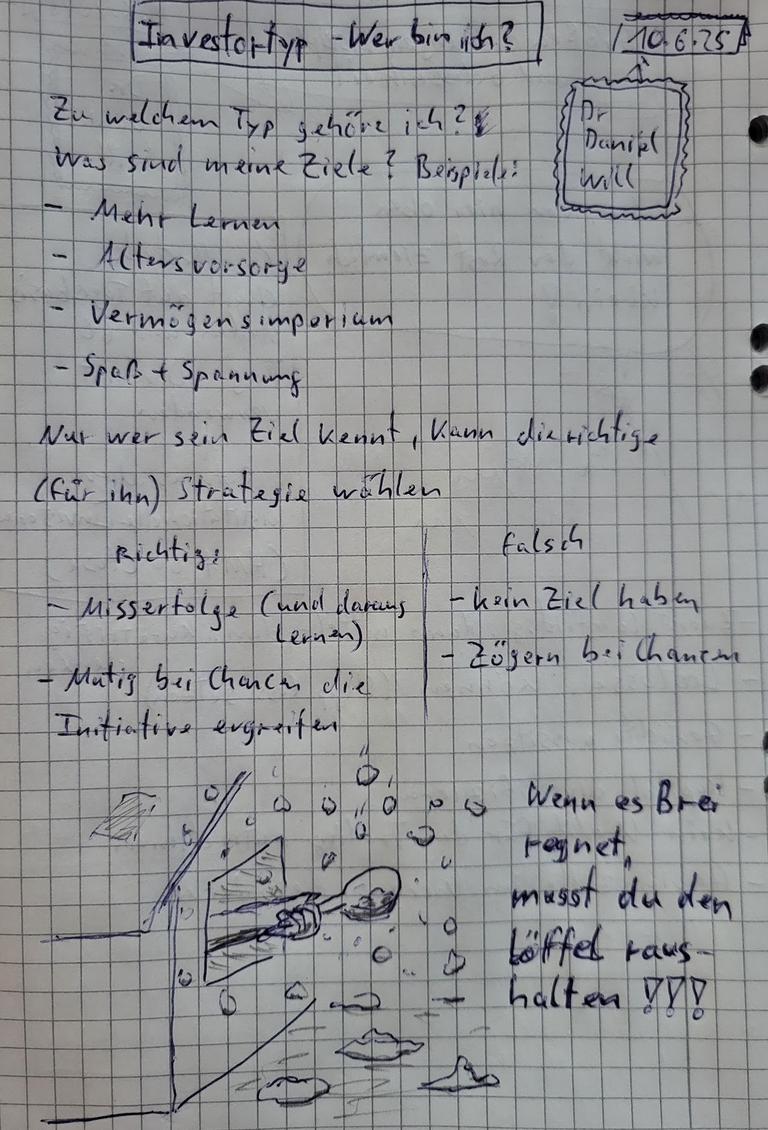 Investortyp - Wer bin ich?
10.6.25
Dr
Daniel
Will
Zu welchem Typ gehöre ich?
Was sind meine Ziele? Beispiele:
- Mehr Lernen
- Altersvorsorge
- Vermögensimporium
- Spaß + Spannung
Nur wer sein Ziel kennt, kann die richtige
(für ihn) Strategie wählen
Richtig:
- Misserfolge (und daraus
lernen)
- Mutig bei Chancen die
Initiative ergreifen
Falsch
- kein Ziel haben
- Zögern bei Chancen
Wenn es Brei
regnet,
musst du den
Löffel raus-
halten !!!